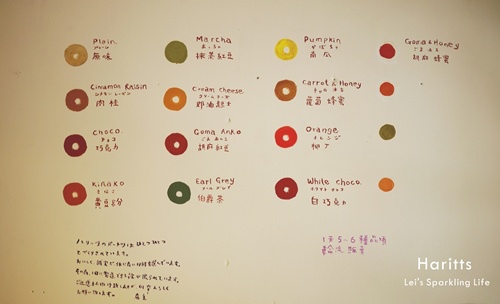 Plain.
プレーン
原味
Marcha
まっちゃ
抹茶紅豆
Pumpkin
かぼちゃ
南瓜
Goma & Honey
胡麻 蜂蜜
Cinnamon Raisin
シナモン レーズン
肉桂
Cream cheese.
クリームチーズ
奶油起士
Carrot & Honey
蘿蔔 蜂蜜
Choco.
チョコ
巧克力
Goma Anko
ごま あんこ
胡麻紅豆
Orange
オレンジ
柳丁
Kinako
きなこ
黃豆粉
Earl Grey
アール グレイ
伯爵茶
White choco.
ホワイト チョコ
白巧克力
ハリッツのドーナツは ひとつひとつ
1天5~6種品項
輪流販售
Haritts
Lei's Sparkling Life